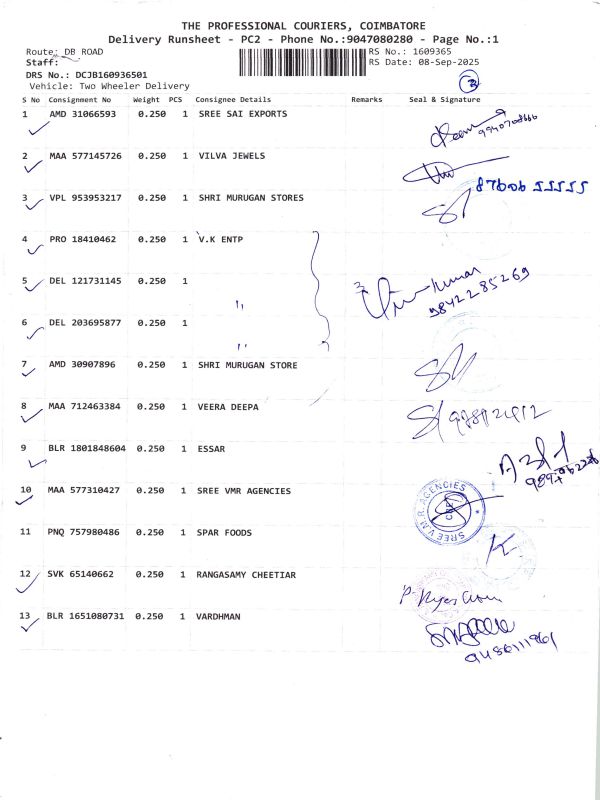 THE PROFESSIONAL COURIERS, COIMBATORE
Delivery Runsheet - PC2 - Phone No.:9047080280 - Page No.:1
Route: DB ROAD RS No.: 1609365
Staff: RS Date: 08-Sep-2025
DRS No.: DCJB160936501
Vehicle: Two Wheeler Delivery
2
S No Consignment No Weight PCS Consignee Details Remarks Seal & Signature
1 AMD 31066593 0.250 1 SREE SAI EXPORTS
2 MAA 577145726 0.250 1 VILVA JEWELS
87606 55555
3 VPL 953953217 0.250 1 SHRI MURUGAN STORES
4 PRO 18410462 0.250 1 V.K ENTP
5 DEL 121731145 0.250 1 "
9842285269
6 DEL 203695877 0.250 1 "
7 AMD 30907896 0.250 1 SHRI MURUGAN STORE
8 MAA 712463384 0.250 1 VEERA DEEPA
9 BLR 1801848604 0.250 1 ESSAR
10 MAA 577310427 0.250 1 SREE VMR AGENCIES
SREE V.M.R. AGENCIES
11 PNQ 757980486 0.250 1 SPAR FOODS
12 SVK 65140662 0.250 1 RANGASAMY CHEETIAR
13 BLR 1651080731 0.250 1 VARDHMAN